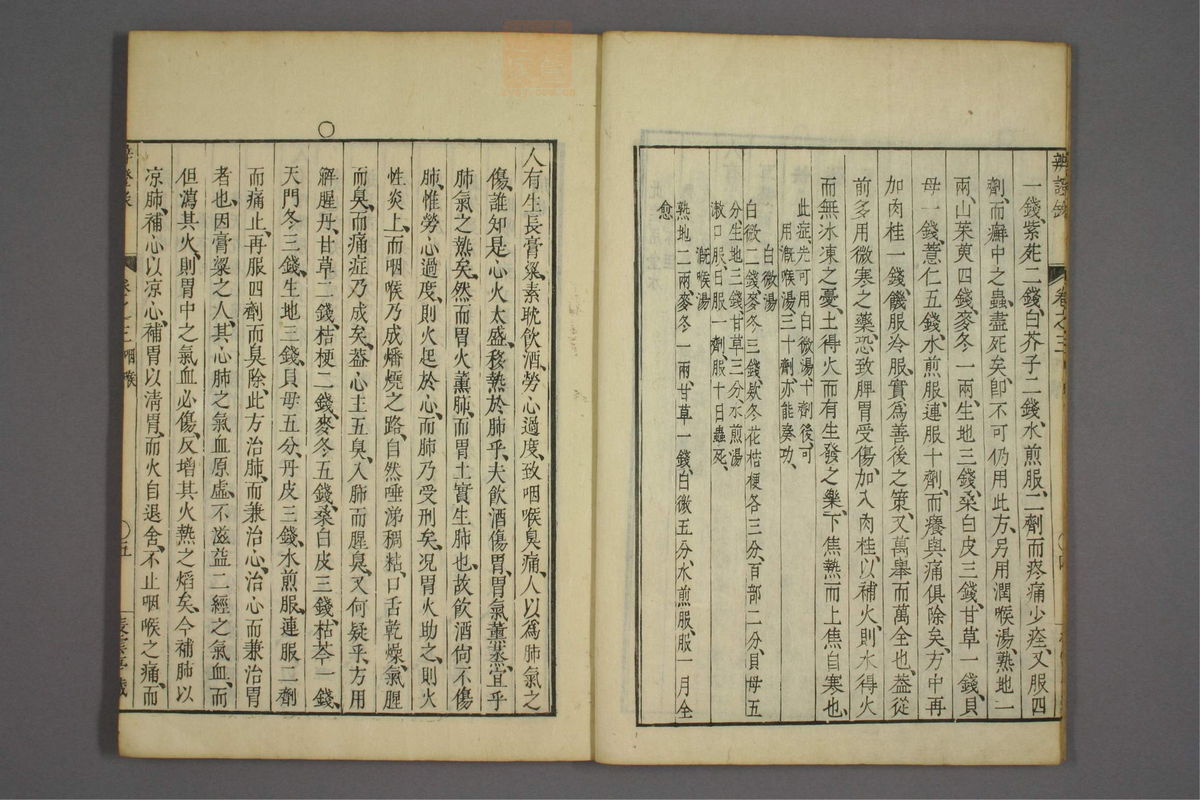 辨證錄 卷之三
一錢、紫菀二錢、白芥子二錢、水煎服、二劑而疼痛少痊、又服四
劑、而癬中之蟲、盡死矣、卽不可仍用此方、另用潤喉湯、熟地一
兩、山茱萸四錢、麥冬一兩、生地三錢、桑白皮三錢、甘草一錢、貝
母一錢、薏仁五錢、水煎服、連服十劑、而癢與痛俱除矣、方中再
加肉桂一錢、饑服冷服、實爲善後之策、又萬舉而萬全也、葢從
前多用微寒之藥、恐致脾胃受傷、加入肉桂、以補火、則水得火
而無冰凍之憂、土得火而有生發之樂、下焦熱而上焦自寒也、
此症、先可用白微湯十劑後、可
用溉喉湯、三十劑、亦能奏功、
白微湯
白微二錢、麥冬三錢、欵冬花桔梗各三分、百部二分、貝母五
分、生地三錢、甘草三分、水煎湯
漱口服、日服一劑、服十日、蟲死、
溉喉湯
熟地二兩、麥冬一兩、甘草一錢、白微五分、水煎服、服一月全
愈
〇
人有生長膏粱、素耽飲酒、勞心過度、致咽喉臭痛、人以爲肺氣之
傷、誰知是心火太盛、移熱於肺乎、夫飲酒傷胃、胃氣薰蒸、宜乎
肺氣之熱矣、然而胃火薰肺、而胃土實生肺也、故飲酒尙不傷
肺、惟勞心過度、則火起於心、而肺乃受刑矣、况胃火助之、則火
性炎上、而咽喉乃成燔燒之路、自然唾涕稠粘、口舌乾燥、氣腥
而臭、而痛症乃成矣、葢心主五臭、入肺而腥臭、又何疑乎、方用
解腥丹、甘草二錢、桔梗二錢、麥冬五錢、桑白皮三錢、枯芩一錢、
天門冬三錢、生地三錢、貝母五分、丹皮三錢、水煎服、連服二劑
而痛止、再服四劑而臭除、此方治肺、而兼治心、治心而兼治胃
者也、因膏粱之人、其心肺之氣血原虛、不滋益二經之氣血、而
但瀉其火、則胃中之氣血必傷、反增其火熱之熖矣、今補肺以
凉肺、補心以凉心、補胃以淸胃、而火自退舍、不止咽喉之痛、而
卷之三 咽喉
〇五